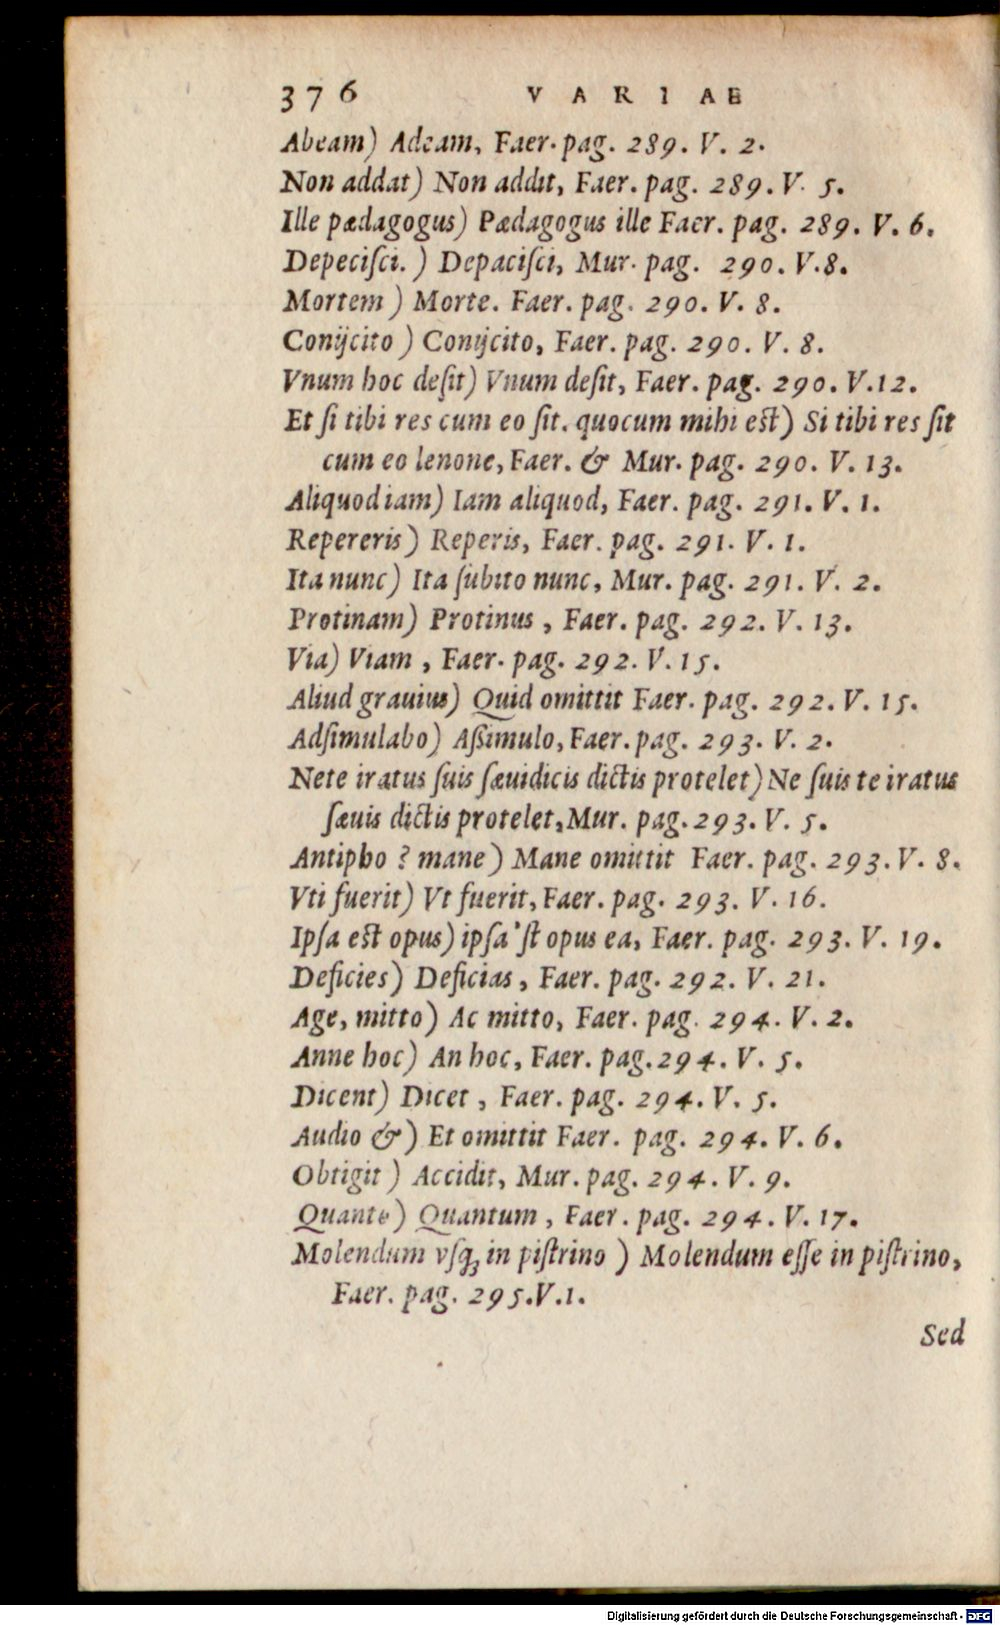 376 VARIAE
Abeam) Adeam, Faer. pag. 289. V. 2.
Non addat) Non addit, Faer. pag. 289. V. 5.
Ille pædagogus) Pædagogus ille Faer. pag. 289. V. 6.
Depeciſci.) Depaciſci, Mur. pag. 290. V. 8.
Mortem) Morte. Faer. pag. 290. V. 8.
Conijcito) Conijcito, Faer. pag. 290. V. 8.
Vnum hoc deſit) Vnum deſit, Faer. pag. 290. V. 12.
Et ſi tibi res cum eo ſit. quocum mihi est) Si tibi res ſit
cum eo lenone, Faer. & Mur. pag. 290. V. 13.
Aliquod iam) Iam aliquod, Faer. pag. 291. V. 1.
Repereris) Reperis, Faer. pag. 291. V. 1.
Ita nunc) Ita ſubito nunc, Mur. pag. 291. V. 2.
Protinam) Protinus, Faer. pag. 292. V. 13.
Via) Viam, Faer. pag. 292. V. 15.
Aliud grauius) Quid omittit Faer. pag. 292. V. 15.
Adſimulabo) Aßimulo, Faer. pag. 293. V. 2.
Nete iratus ſuis ſæuidicis dictis protelet) Ne ſuis te iratus
ſæuis dictis protelet, Mur. pag. 293. V. 5.
Antipho? mane) Mane omittit Faer. pag. 293. V. 8.
Vti fuerit) Vt fuerit, Faer. pag. 293. V. 16.
Ipſa est opus) ipſa'ſt opus ea, Faer. pag. 293. V. 19.
Deficies) Deficias, Faer. pag. 292. V. 21.
Age, mitto) Ac mitto, Faer. pag. 294. V. 2.
Anne hoc) An hoc, Faer. pag. 294. V. 5.
Dicent) Dicet, Faer. pag. 294. V. 5.
Audio &) Et omittit Faer. pag. 294. V. 6.
Obtigit) Accidit, Mur. pag. 294. V. 9.
Quanto) Quantum, Faer. pag. 294. V. 17.
Molendum vſq; in piſtrino) Molendum eſſe in piſtrino,
Faer. pag. 295. V. 1.
Sed
Digitalisierung gefördert durch die Deutsche Forschungsgemeinschaft - DFG